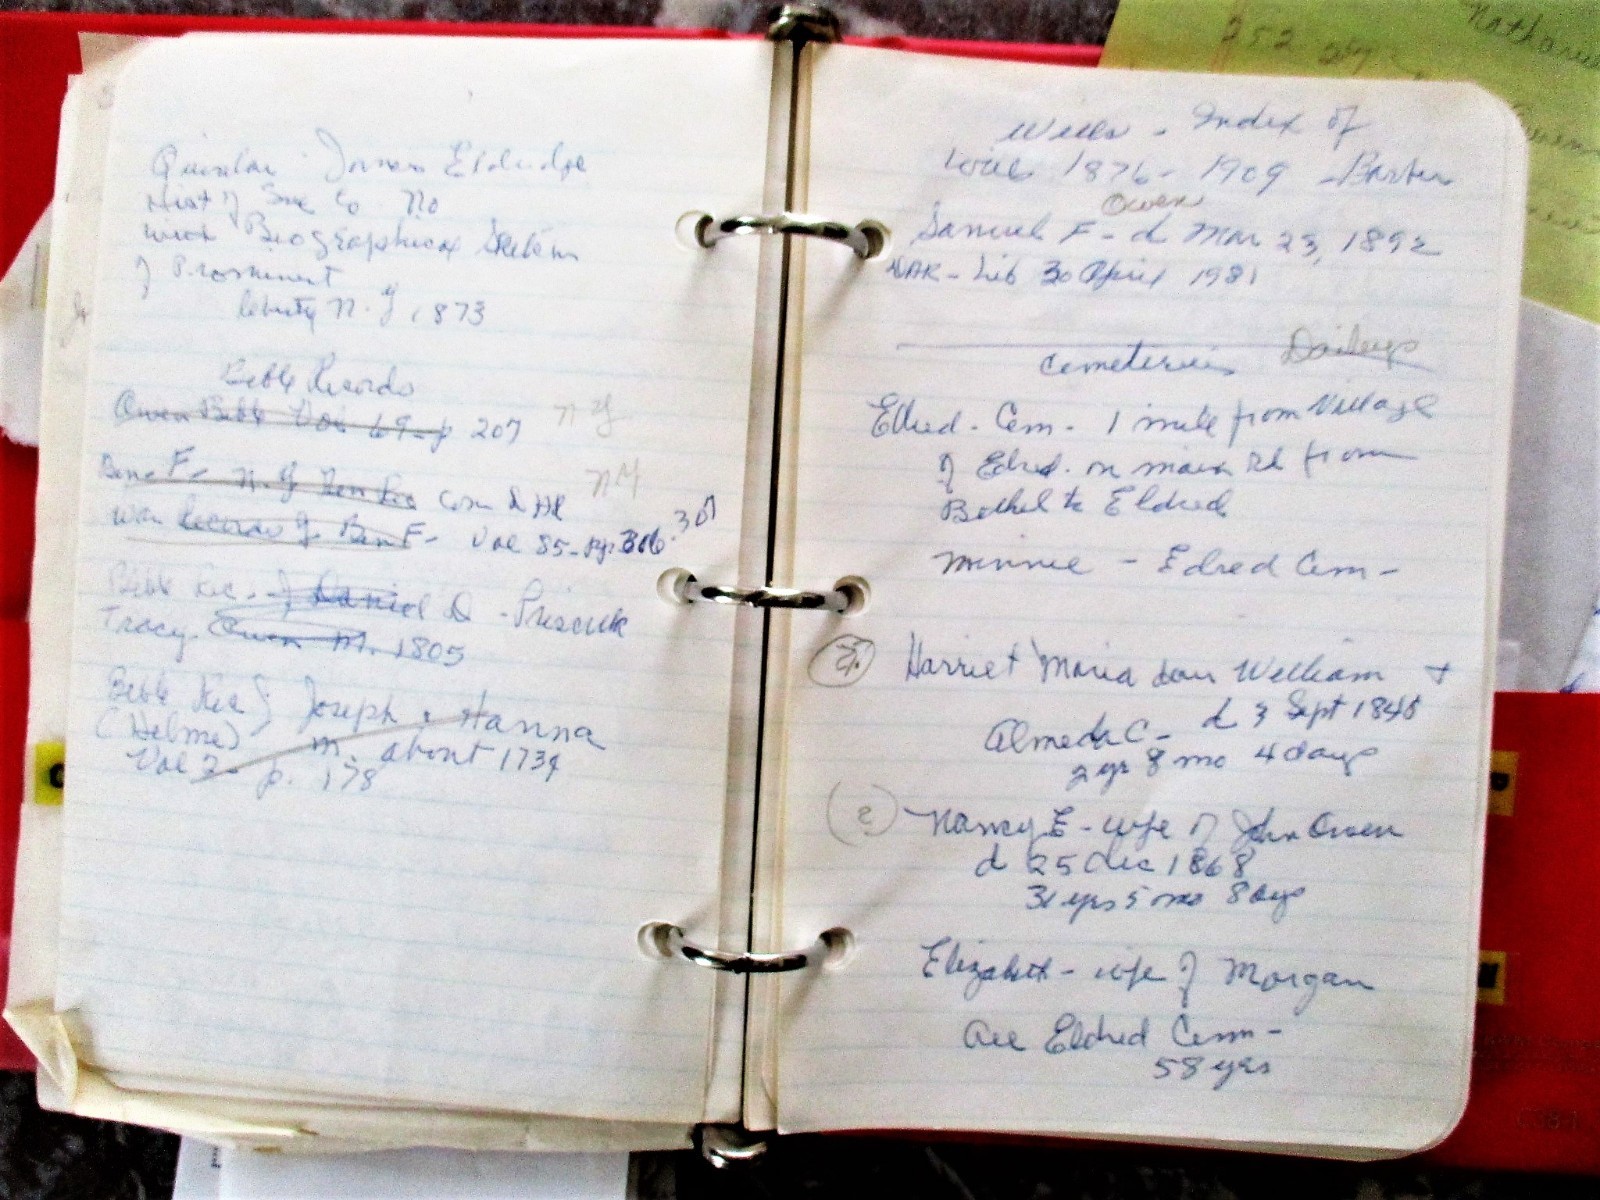 Quinlan James Eldridge
Hist of Co No
with Biographical Sketches
of Prominent
County N.Y. 1873
Bible Records
Owen Bible Vol 69-p 207 NY
Ben. F. N.Y. Gen Com DAR NY
War Record of Ben F- Vol 85- pg. 306-307
Bible Rec. of Daniel D -
Tracy. Owen M. 1805
Bible Rec of Joseph & Hanna
(Helme) m. about 1734
Vol 2 p. 178
Wills - Index of
Wills 1876 - 1909 - Barber
Owen
Samuel F - d Mar 23, 1892
DAR - Lib 30 April 1981
Cemeteries Daileys
Eldred. Cem. 1 mile from Village
of Eldred. on main Rd from
Bethel to Eldred
Minnie - Eldred Cem -
Harriet Maria dau William +
Almeda C - d 3 Sept 1845
2 yr 8 mo 4 days
Nancy E - wife of John Owen
d 25 Dec 1868
31 yrs 5 mo 8 days
Elizabeth - wife of Morgan
all Eldred Cem -
58 yrs
252